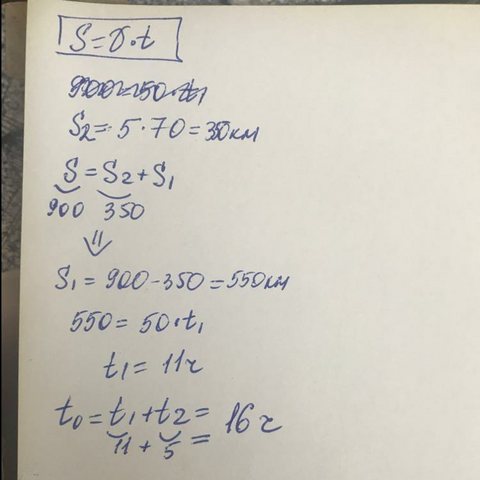 S = v · t
900 = 50 · t₁
S₂ = 5 · 70 = 350 км
S = S₂ + S₁
900 350
⇓
S₁ = 900 - 350 = 550 км
550 = 50 · t₁
t₁ = 11 ч
t₀ = t₁ + t₂ = 16 ч
11 + 5 =